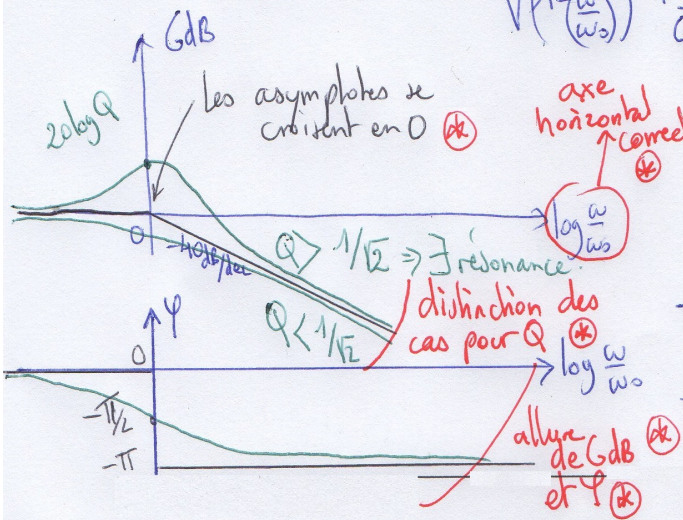 √(1-(ω/ω₀))
GdB
Les asymptotes se
croisent en O *
axe
horizontal
correct
*
20logQ
log ω/ω₀
0
-40dB/dec
Q > 1/√2 => ∃ résonance.
Q < 1/√2
distinction des
cas pour Q *
φ
0
log ω/ω₀
-π/2
-π
allure *
de GdB
et φ *